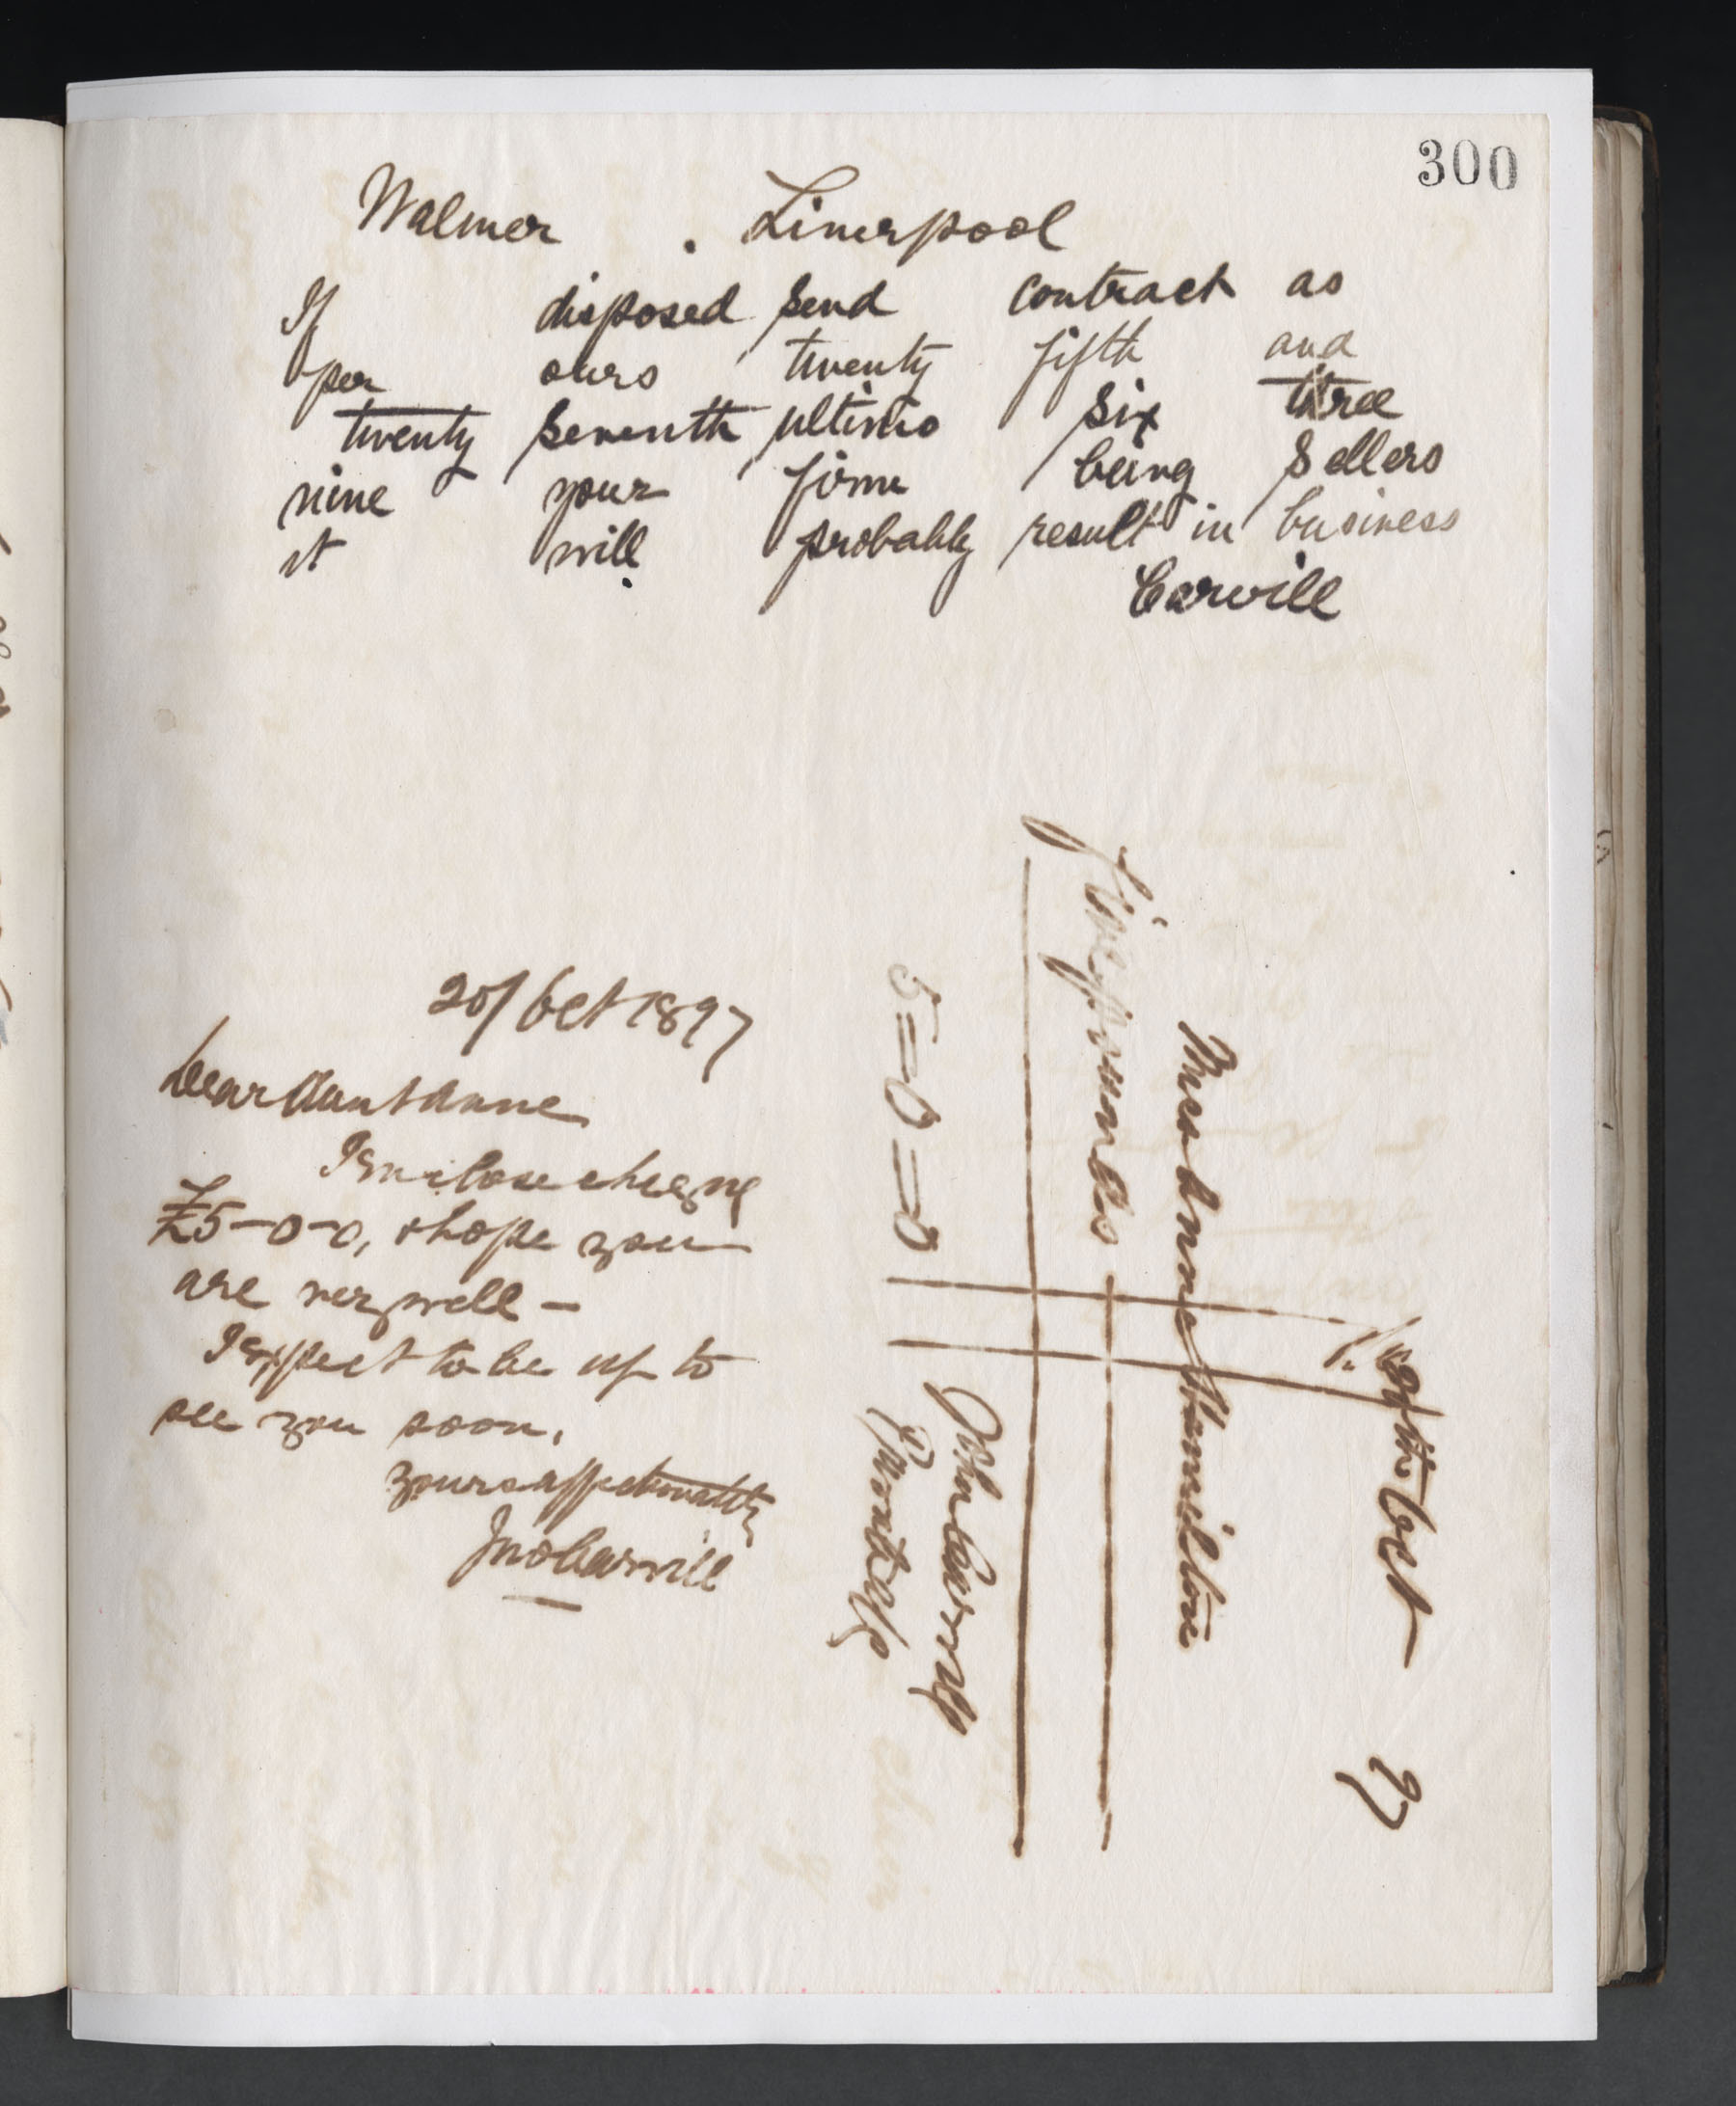 300
Walmer . Liverpool
If disposed send contract as
per ours twenty fifth and
twenty seventh ultimo six three
nine your firm being sellers
it will probably result in business
Carvill
20/ Oct 1897
Dear Aunt Anne
I enclose cheque
£5-0-0, & hope you
are very well -
I expect to be up to
see you soon,
yours affectionately
Jno Carvill
Oct 97
Miss Anne Hamilton
five pounds
John Carvill
5=0=0 Private a/c